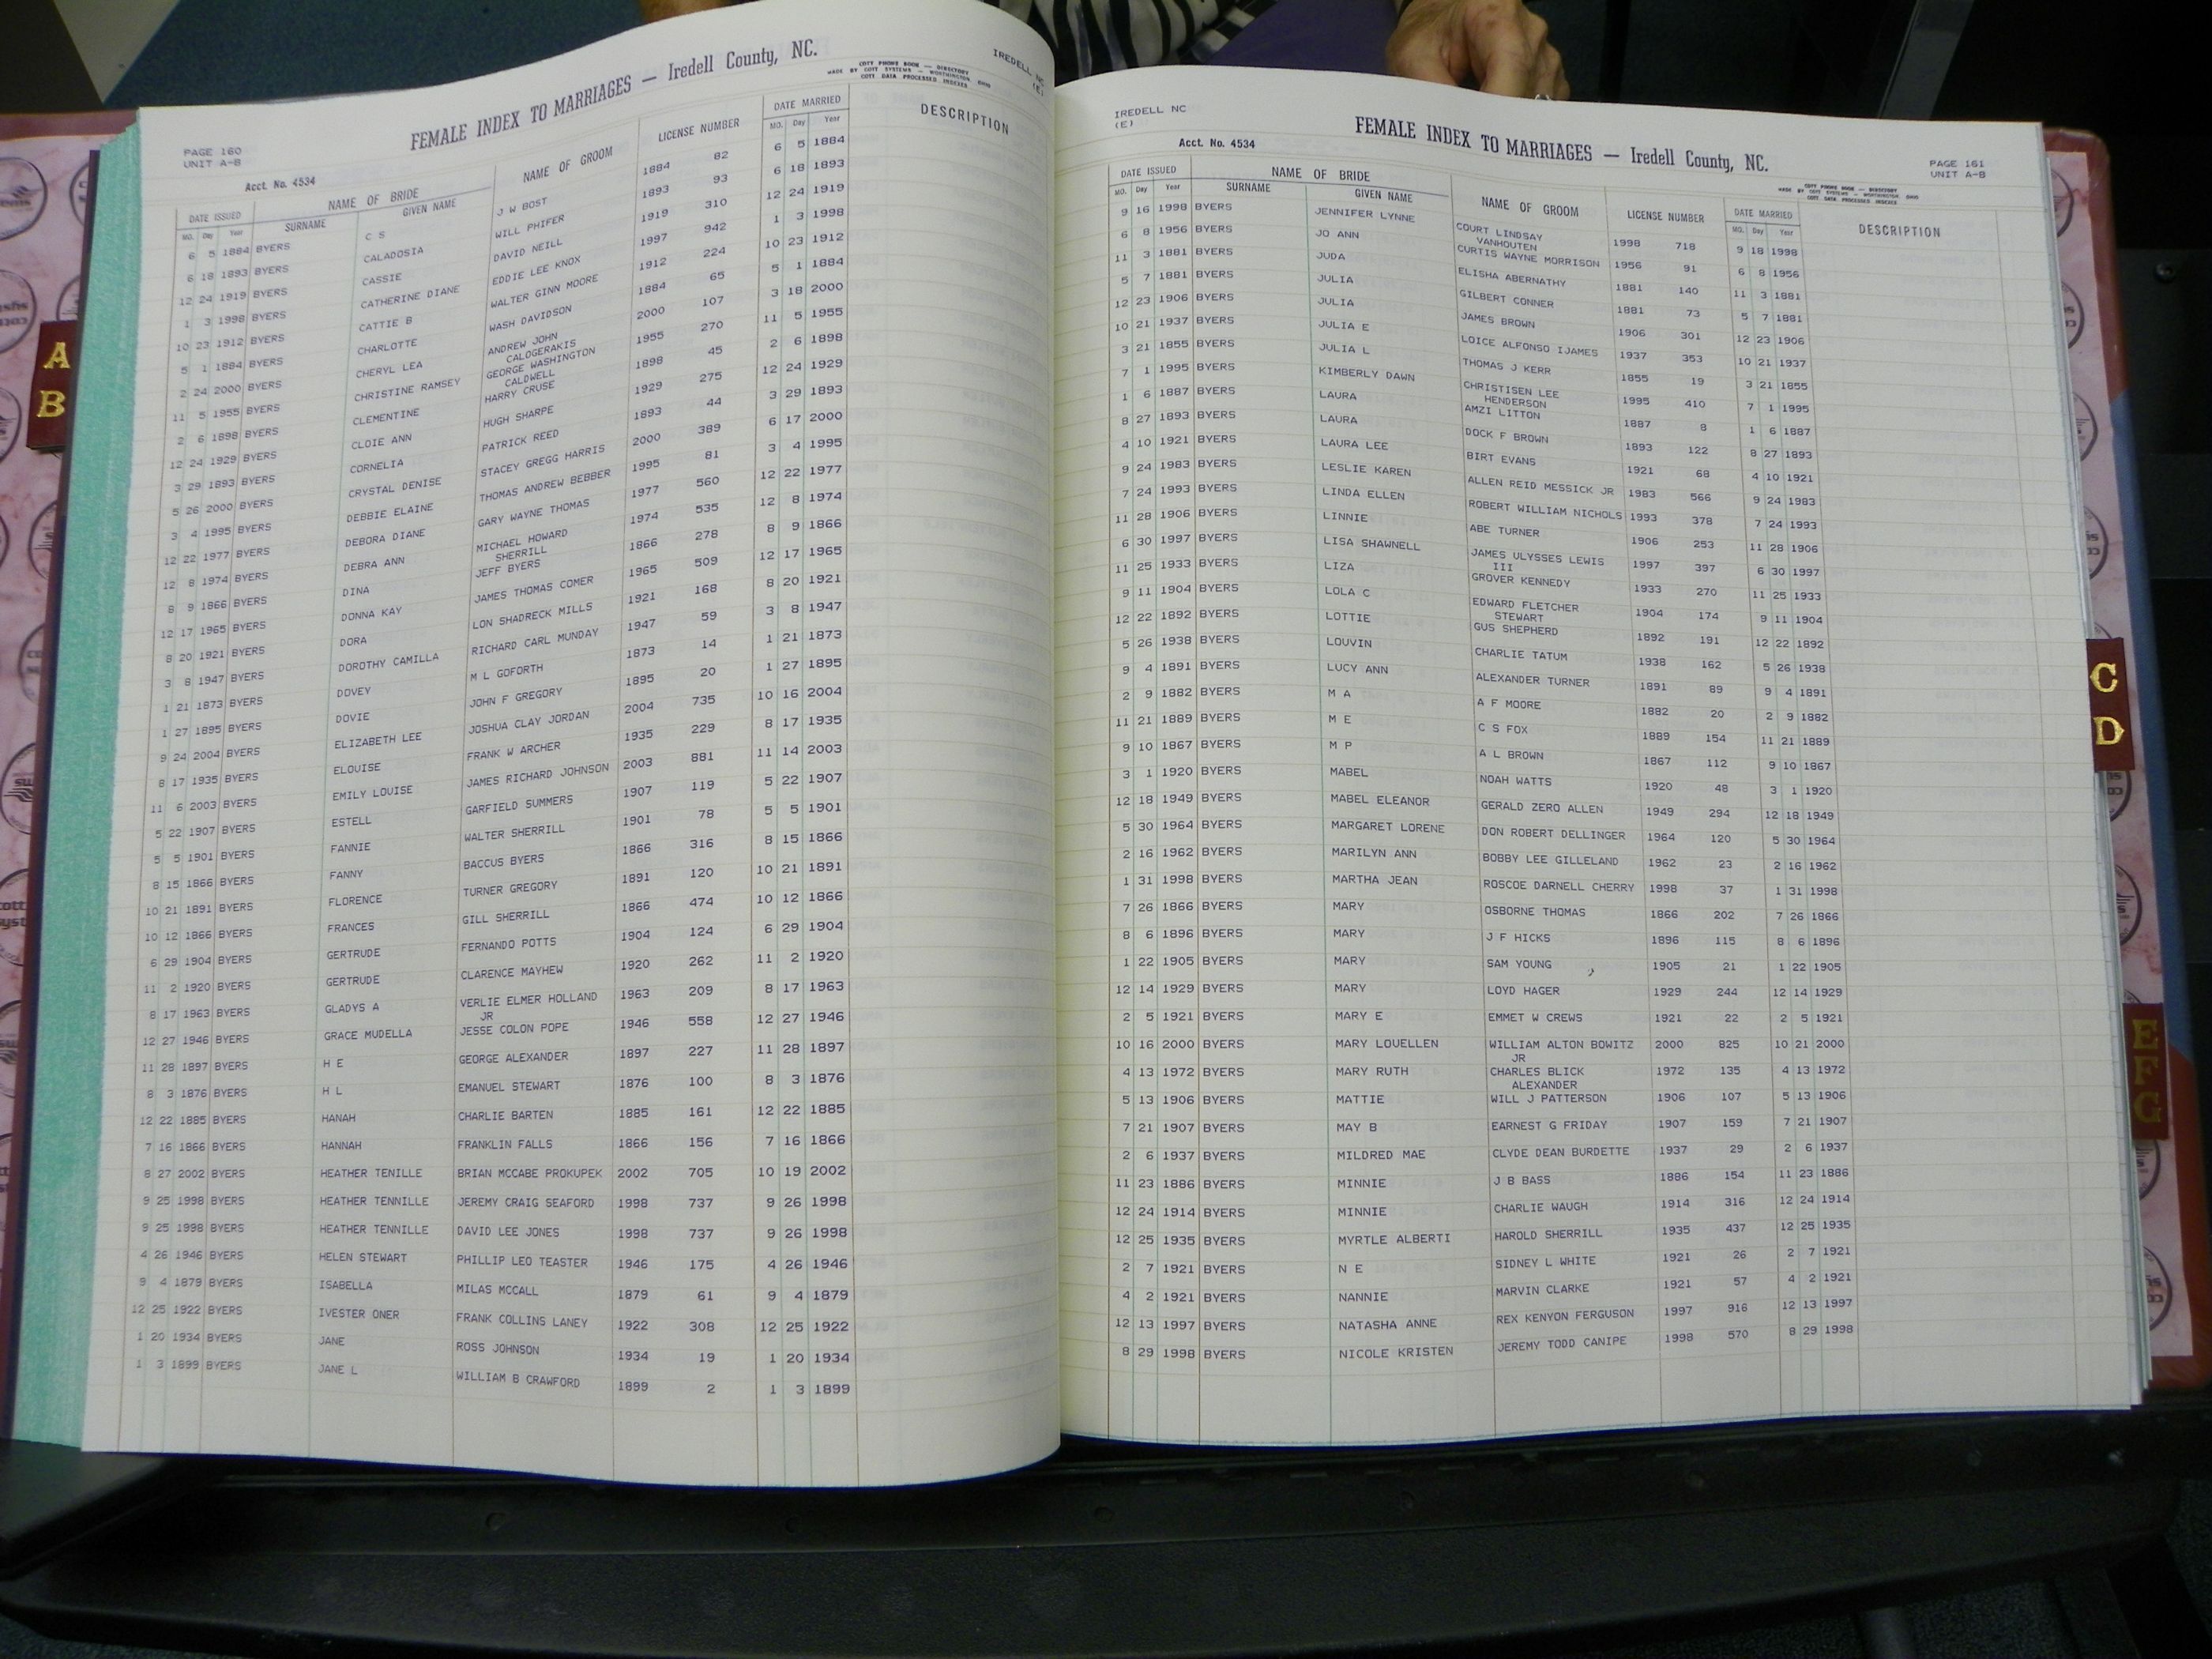 FEMALE INDEX TO MARRIAGES — Iredell County, NC.
COTT PHONE BOOK — DIRECTORY
MADE BY COTT SYSTEMS — WORTHINGTON, OHIO
COTT DATA PROCESSED INDEXES
IREDELL NC
(E)
PAGE 160
UNIT A-B
Acct. No. 4534
DATE ISSUED NAME OF BRIDE NAME OF GROOM LICENSE NUMBER DATE MARRIED DESCRIPTION
MO. Day Year SURNAME GIVEN NAME MO. Day Year
6 5 1884 BYERS C S J W BOST 1884 82 6 5 1884
6 18 1893 BYERS CALADOSIA WILL PHIFER 1893 93 6 18 1893
12 24 1919 BYERS CASSIE DAVID NEILL 1919 310 12 24 1919
1 3 1998 BYERS CATHERINE DIANE EDDIE LEE KNOX 1997 942 1 3 1998
10 23 1912 BYERS CATTIE B WALTER GINN MOORE 1912 224 10 23 1912
5 1 1884 BYERS CHARLOTTE WASH DAVIDSON 1884 65 5 1 1884
2 24 2000 BYERS CHERYL LEA ANDREW JOHN 2000 107 3 18 2000
CALOGERAKIS
11 5 1955 BYERS CHRISTINE RAMSEY GEORGE WASHINGTON 1955 270 11 5 1955
CALDWELL
2 6 1898 BYERS CLEMENTINE HARRY CRUSE 1898 45 2 6 1898
12 24 1929 BYERS CLOIE ANN HUGH SHARPE 1929 275 12 24 1929
3 29 1893 BYERS CORNELIA PATRICK REED 1893 44 3 29 1893
5 26 2000 BYERS CRYSTAL DENISE STACEY GREGG HARRIS 2000 389 6 17 2000
3 4 1995 BYERS DEBBIE ELAINE THOMAS ANDREW BEBBER 1995 81 3 4 1995
12 22 1977 BYERS DEBORA DIANE GARY WAYNE THOMAS 1977 560 12 22 1977
12 8 1974 BYERS DEBRA ANN MICHAEL HOWARD 1974 535 12 8 1974
SHERRILL
8 9 1866 BYERS DINA JEFF BYERS 1866 278 8 9 1866
12 17 1965 BYERS DONNA KAY JAMES THOMAS COMER 1965 509 12 17 1965
8 20 1921 BYERS DORA LON SHADRECK MILLS 1921 168 8 20 1921
3 8 1947 BYERS DOROTHY CAMILLA RICHARD CARL MUNDAY 1947 59 3 8 1947
1 21 1873 BYERS DOVEY M L GOFORTH 1873 14 1 21 1873
1 27 1895 BYERS DOVIE JOHN F GREGORY 1895 20 1 27 1895
9 24 2004 BYERS ELIZABETH LEE JOSHUA CLAY JORDAN 2004 735 10 16 2004
8 17 1935 BYERS ELOUISE FRANK W ARCHER 1935 229 8 17 1935
11 6 2003 BYERS EMILY LOUISE JAMES RICHARD JOHNSON 2003 881 11 14 2003
5 22 1907 BYERS ESTELL GARFIELD SUMMERS 1907 119 5 22 1907
5 5 1901 BYERS FANNIE WALTER SHERRILL 1901 78 5 5 1901
8 15 1866 BYERS FANNY BACCUS BYERS 1866 316 8 15 1866
10 21 1891 BYERS FLORENCE TURNER GREGORY 1891 120 10 21 1891
10 12 1866 BYERS FRANCES GILL SHERRILL 1866 474 10 12 1866
6 29 1904 BYERS GERTRUDE FERNANDO POTTS 1904 124 6 29 1904
11 2 1920 BYERS GERTRUDE CLARENCE MAYHEW 1920 262 11 2 1920
8 17 1963 BYERS GLADYS A VERLIE ELMER HOLLAND 1963 209 8 17 1963
JR
12 27 1946 BYERS GRACE MUDELLA JESSE COLON POPE 1946 558 12 27 1946
11 28 1897 BYERS H E GEORGE ALEXANDER 1897 227 11 28 1897
8 3 1876 BYERS H L EMANUEL STEWART 1876 100 8 3 1876
12 22 1885 BYERS HANAH CHARLIE BARTEN 1885 161 12 22 1885
7 16 1866 BYERS HANNAH FRANKLIN FALLS 1866 156 7 16 1866
8 27 2002 BYERS HEATHER TENILLE BRIAN MCCABE PROKUPEK 2002 705 10 19 2002
9 25 1998 BYERS HEATHER TENNILLE JEREMY CRAIG SEAFORD 1998 737 9 26 1998
9 25 1998 BYERS HEATHER TENNILLE DAVID LEE JONES 1998 737 9 26 1998
4 26 1946 BYERS HELEN STEWART PHILLIP LEO TEASTER 1946 175 4 26 1946
9 4 1879 BYERS ISABELLA MILAS MCCALL 1879 61 9 4 1879
12 25 1922 BYERS IVESTER ONER FRANK COLLINS LANEY 1922 308 12 25 1922
1 20 1934 BYERS JANE ROSS JOHNSON 1934 19 1 20 1934
1 3 1899 BYERS JANE L WILLIAM B CRAWFORD 1899 2 1 3 1899
IREDELL NC
(E)
FEMALE INDEX TO MARRIAGES — Iredell County, NC.
Acct. No. 4534
PAGE 161
UNIT A-B
COTT PHONE BOOK — DIRECTORY
MADE BY COTT SYSTEMS — WORTHINGTON, OHIO
COTT DATA PROCESSED INDEXES
DATE ISSUED NAME OF BRIDE NAME OF GROOM LICENSE NUMBER DATE MARRIED DESCRIPTION
MO. Day Year SURNAME GIVEN NAME MO. Day Year
9 16 1998 BYERS JENNIFER LYNNE COURT LINDSAY 1998 718 9 18 1998
VANHOUTEN
6 8 1956 BYERS JO ANN CURTIS WAYNE MORRISON 1956 91 6 8 1956
11 3 1881 BYERS JUDA ELISHA ABERNATHY 1881 140 11 3 1881
5 7 1881 BYERS JULIA GILBERT CONNER 1881 73 5 7 1881
12 23 1906 BYERS JULIA JAMES BROWN 1906 301 12 23 1906
10 21 1937 BYERS JULIA E LOICE ALFONSO IJAMES 1937 353 10 21 1937
3 21 1855 BYERS JULIA L THOMAS J KERR 1855 19 3 21 1855
7 1 1995 BYERS KIMBERLY DAWN CHRISTISEN LEE 1995 410 7 1 1995
HENDERSON
1 6 1887 BYERS LAURA AMZI LITTON 1887 8 1 6 1887
8 27 1893 BYERS LAURA DOCK F BROWN 1893 122 8 27 1893
4 10 1921 BYERS LAURA LEE BIRT EVANS 1921 68 4 10 1921
9 24 1983 BYERS LESLIE KAREN ALLEN REID MESSICK JR 1983 566 9 24 1983
7 24 1993 BYERS LINDA ELLEN ROBERT WILLIAM NICHOLS 1993 378 7 24 1993
11 28 1906 BYERS LINNIE ABE TURNER 1906 253 11 28 1906
6 30 1997 BYERS LISA SHAWNELL JAMES ULYSSES LEWIS 1997 397 6 30 1997
III
11 25 1933 BYERS LIZA GROVER KENNEDY 1933 270 11 25 1933
9 11 1904 BYERS LOLA C EDWARD FLETCHER 1904 174 9 11 1904
STEWART
12 22 1892 BYERS LOTTIE GUS SHEPHERD 1892 191 12 22 1892
5 26 1938 BYERS LOUVIN CHARLIE TATUM 1938 162 5 26 1938
9 4 1891 BYERS LUCY ANN ALEXANDER TURNER 1891 89 9 4 1891
2 9 1882 BYERS M A A F MOORE 1882 20 2 9 1882
11 21 1889 BYERS M E C S FOX 1889 154 11 21 1889
9 10 1867 BYERS M P A L BROWN 1867 112 9 10 1867
3 1 1920 BYERS MABEL NOAH WATTS 1920 48 3 1 1920
12 18 1949 BYERS MABEL ELEANOR GERALD ZERO ALLEN 1949 294 12 18 1949
5 30 1964 BYERS MARGARET LORENE DON ROBERT DELLINGER 1964 120 5 30 1964
2 16 1962 BYERS MARILYN ANN BOBBY LEE GILLELAND 1962 23 2 16 1962
1 31 1998 BYERS MARTHA JEAN ROSCOE DARNELL CHERRY 1998 37 1 31 1998
7 26 1866 BYERS MARY OSBORNE THOMAS 1866 202 7 26 1866
8 6 1896 BYERS MARY J F HICKS 1896 115 8 6 1896
1 22 1905 BYERS MARY SAM YOUNG 1905 21 1 22 1905
12 14 1929 BYERS MARY LOYD HAGER 1929 244 12 14 1929
2 5 1921 BYERS MARY E EMMET W CREWS 1921 22 2 5 1921
10 16 2000 BYERS MARY LOUELLEN WILLIAM ALTON BOWITZ 2000 825 10 21 2000
JR
4 13 1972 BYERS MARY RUTH CHARLES BLICK 1972 135 4 13 1972
ALEXANDER
5 13 1906 BYERS MATTIE WILL J PATTERSON 1906 107 5 13 1906
7 21 1907 BYERS MAY B EARNEST G FRIDAY 1907 159 7 21 1907
2 6 1937 BYERS MILDRED MAE CLYDE DEAN BURDETTE 1937 29 2 6 1937
11 23 1886 BYERS MINNIE J B BASS 1886 154 11 23 1886
12 24 1914 BYERS MINNIE CHARLIE WAUGH 1914 316 12 24 1914
12 25 1935 BYERS MYRTLE ALBERTI HAROLD SHERRILL 1935 437 12 25 1935
2 7 1921 BYERS N E SIDNEY L WHITE 1921 26 2 7 1921
4 2 1921 BYERS NANNIE MARVIN CLARKE 1921 57 4 2 1921
12 13 1997 BYERS NATASHA ANNE REX KENYON FERGUSON 1997 916 12 13 1997
8 29 1998 BYERS NICOLE KRISTEN JEREMY TODD CANIPE 1998 570 8 29 1998
A
B
C
D
E
F
G